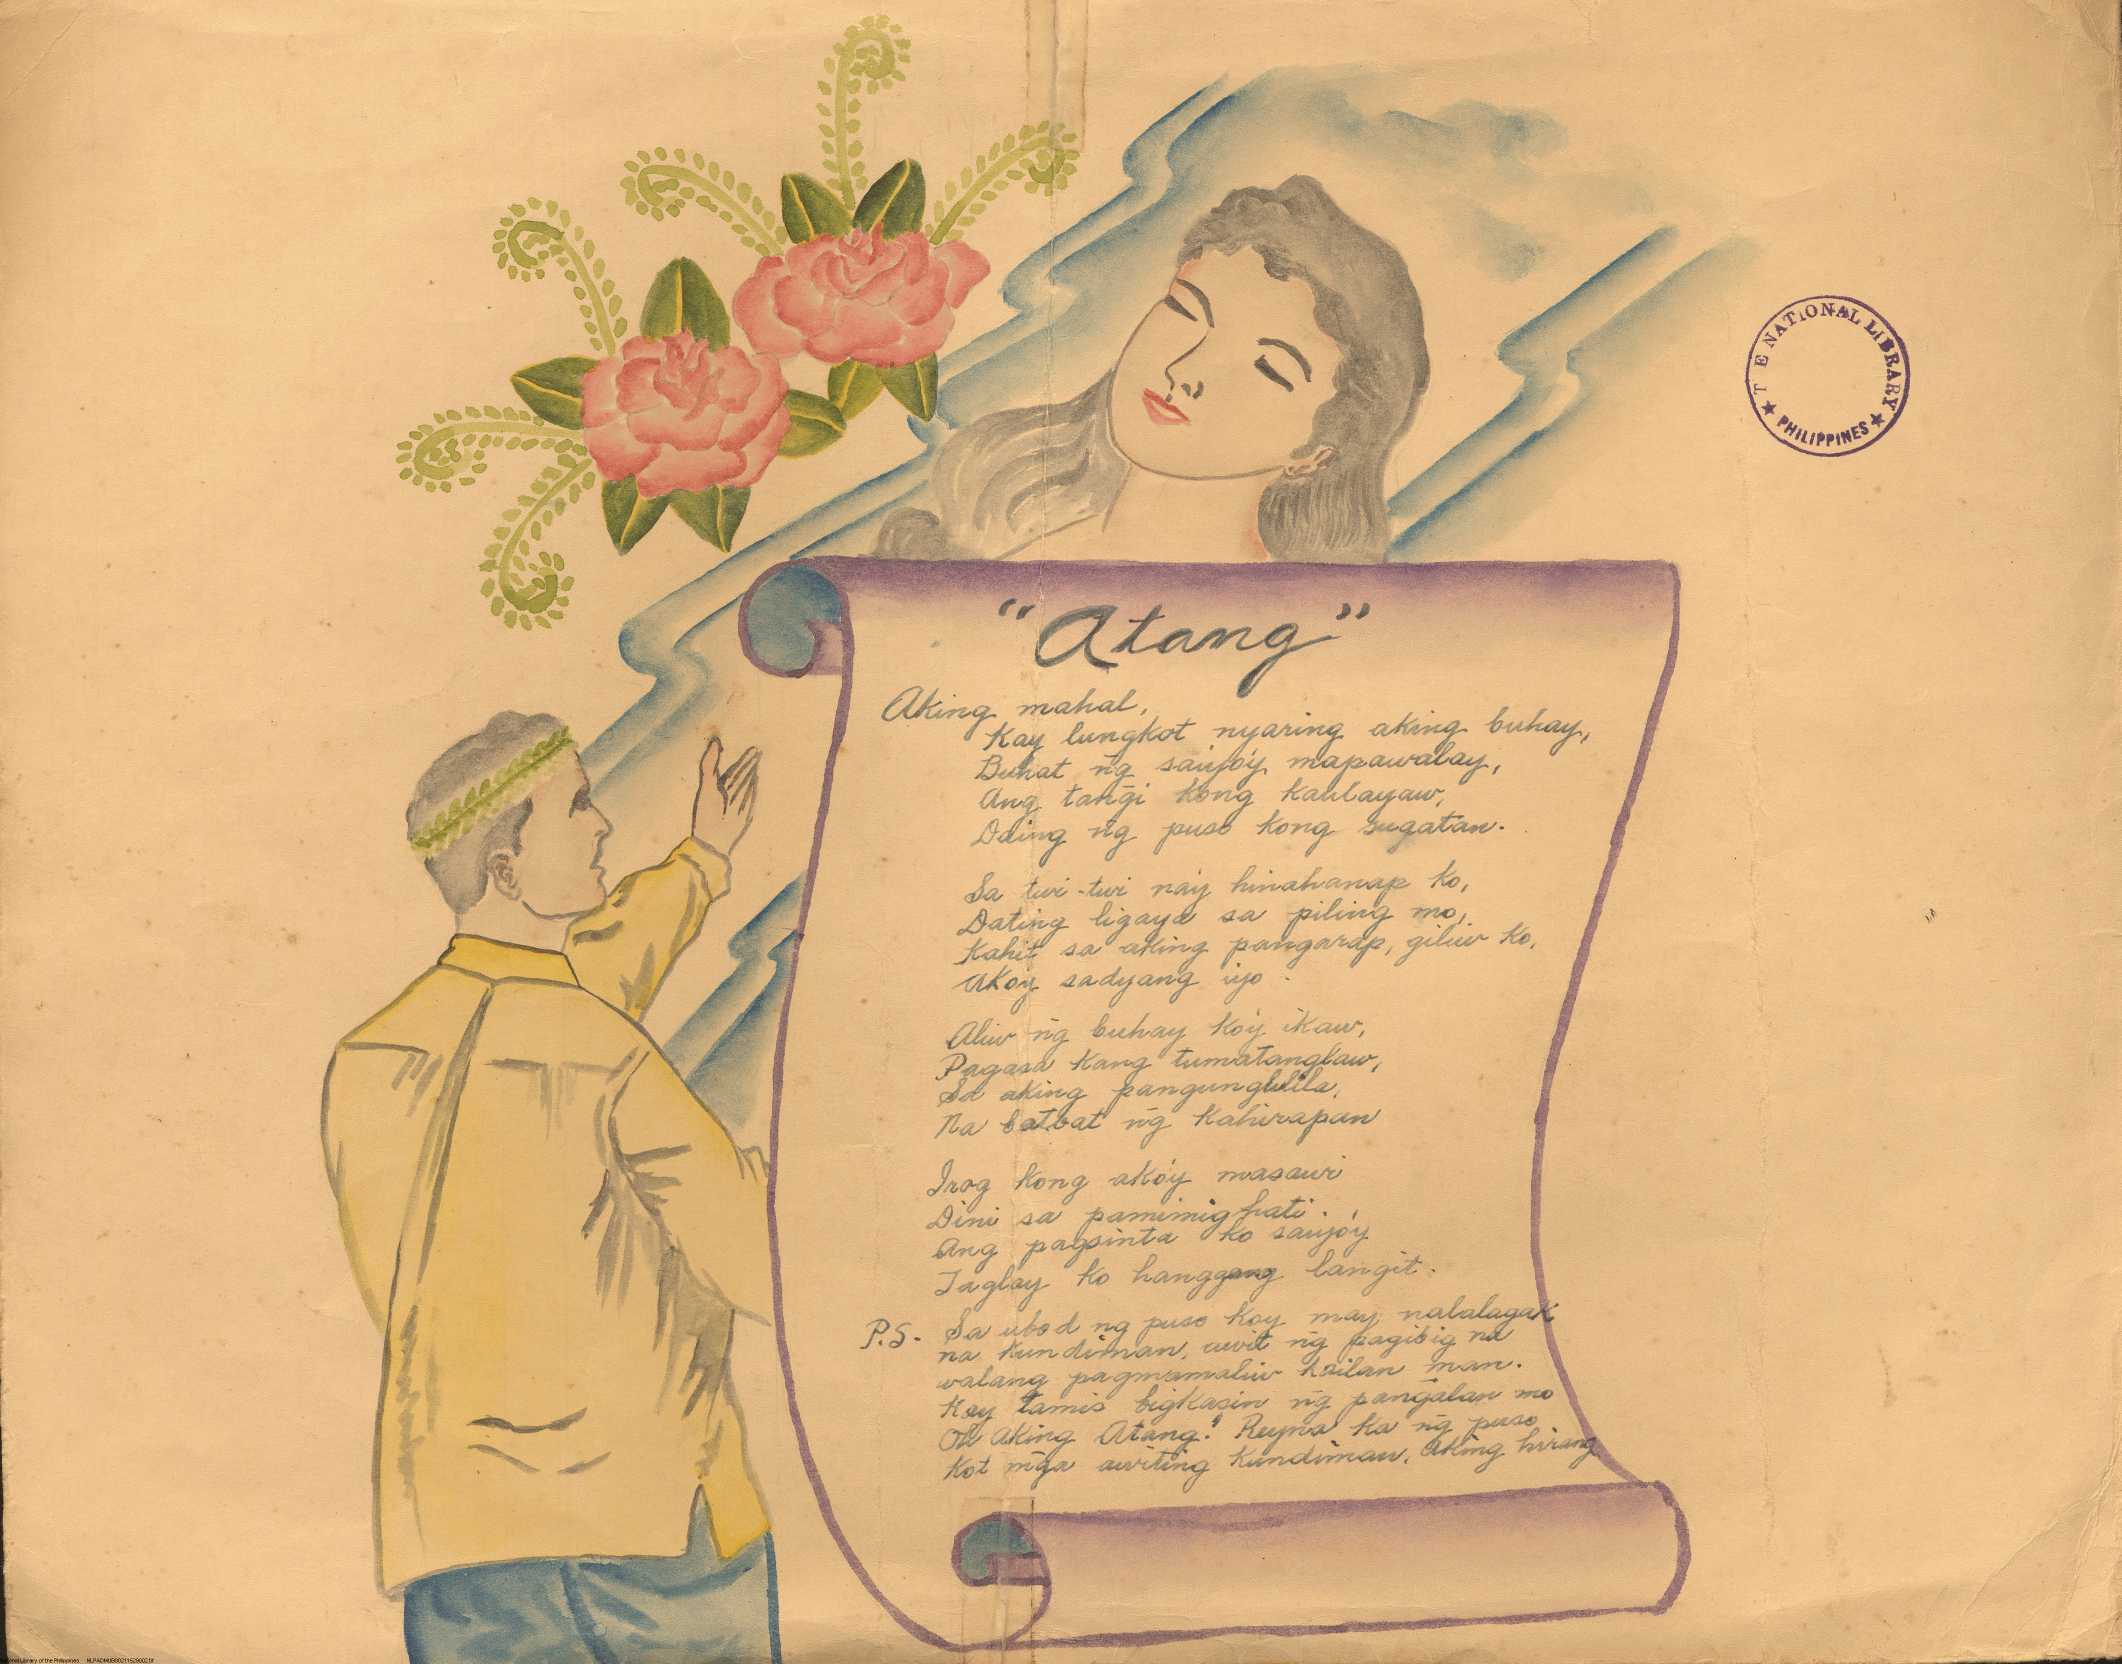 THE NATIONAL LIBRARY
★ PHILIPPINES ★
"Atang"
Aking mahal,
Kay lungkot nyaring aking buhay,
Buhat ng̃ saiyo'y mapawalay,
Ang tang̃i kong kaulayaw,
Daing ng̃ puso kong sugatan.
Sa twi-twi na'y hinahanap ko,
Dating ligaya sa piling mo,
Kahit sa aking pangarap, giliw ko,
Akoy sadyang iyo.
Aliw ng̃ buhay ko'y ikaw,
Pagasa kang tumatanglaw,
Sa aking pangungulila,
Na batbat ng̃ kahirapan
Irog kong ako'y masawi
Dini sa pamimighati.
Ang pagsinta ko saiyo'y
Taglay ko hanggang langit.
P.S. Sa ubod ng puso koy may nalalagak
na kundiman, awit ng̃ pagibig na
walang pagmamaliw kailan man.
Kay tamis bigkasin ng̃ pang̃alan mo
Oh aking Atang! Reyna ka ng̃ puso
Kot mg̃a awiting Kundiman. Aking hirang
National Library of the Philippines